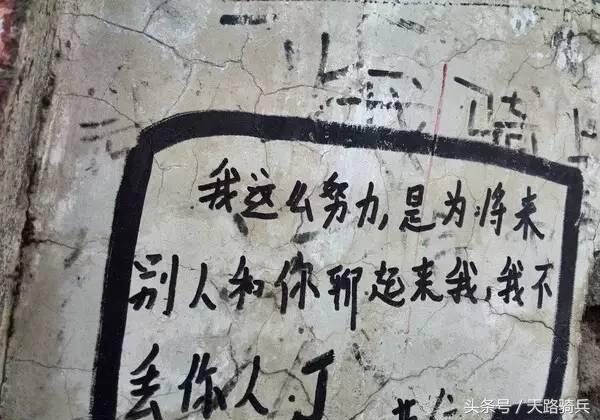 骑
我这么努力,是为将来
别人和你聊起来我,我不
丢你人.J
头条号/天路骑兵